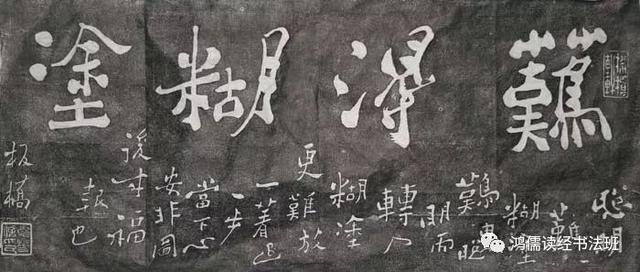 難得糊塗
聰明
難
糊塗
難由聰
明而
轉入
糊塗
更難放
一著退
一步
當下心
安非圖
後来福
報也
板橋
鸿儒读经书法班